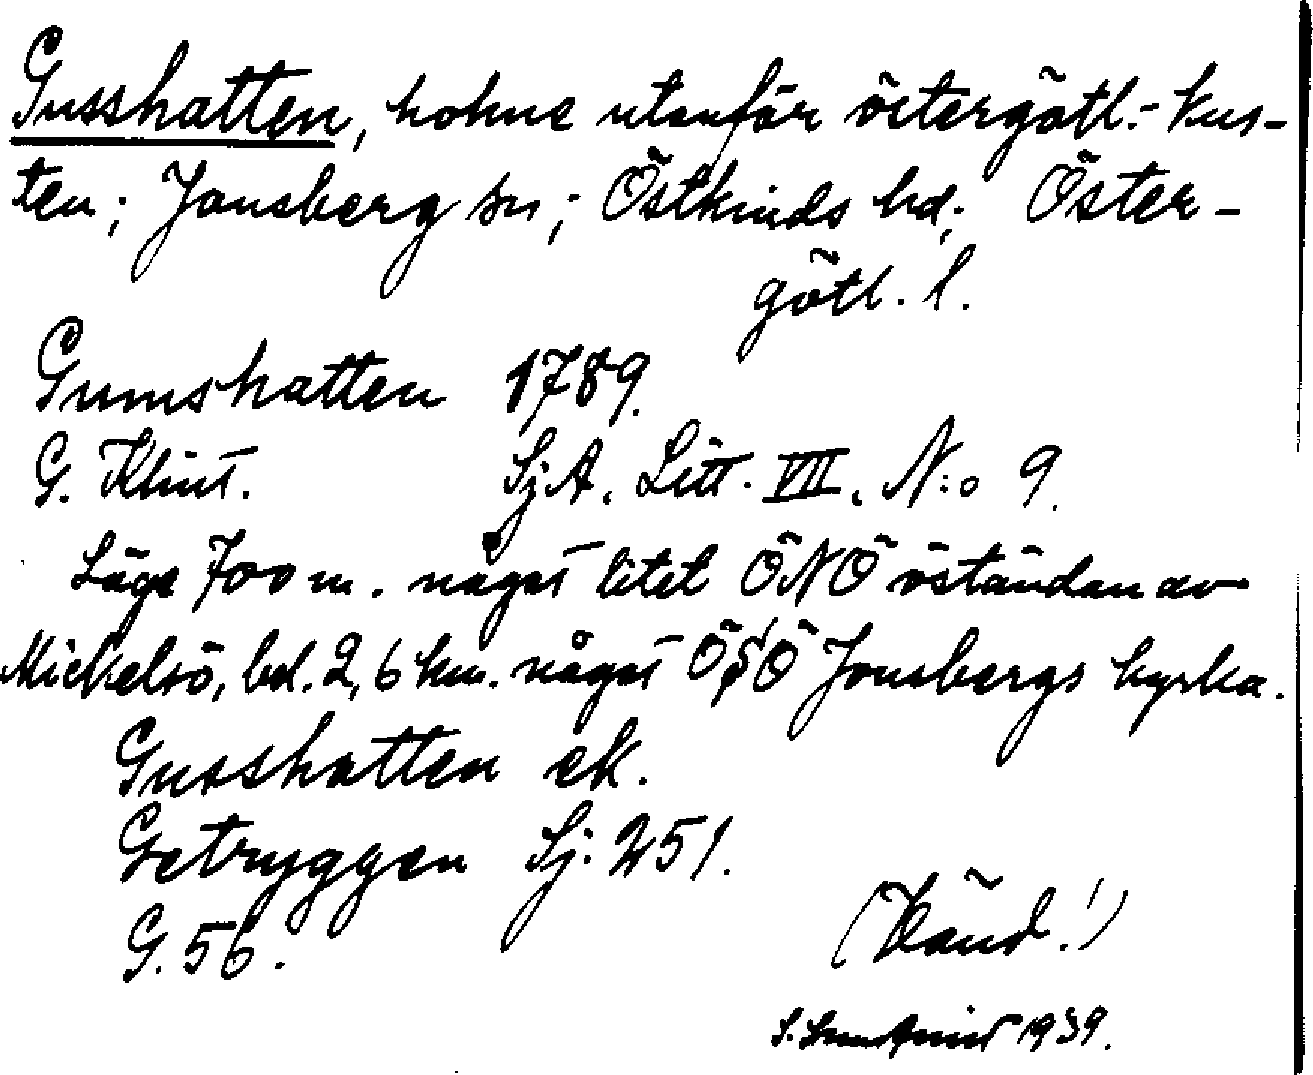 Gusshatten, holme utanför östergötl.- kus-
ten; Jonsberg sn; Östkinds hd; Öster-
götl. l.
Gumshatten 1789.
G. Klint. SjA. Litt. VII. N:o 9.
Läge 700 m. något litet ÖNÖ öständan av
Mickelsö, bel. 2,6 km. något ÖSÖ Jonsbergs kyrka.
Gusshatten ek.
Getryggen Sj. 251.
G. 56.
(Känd!)
1939.